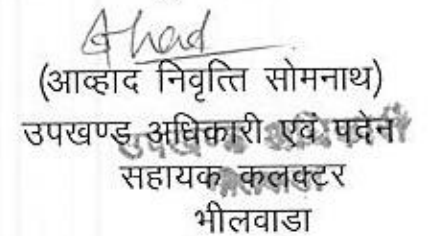 (आव्हाद निवृत्ति सोमनाथ)
उपखण्ड अधिकारी एवं पदेन
सहायक कलक्टर
भीलवाडा